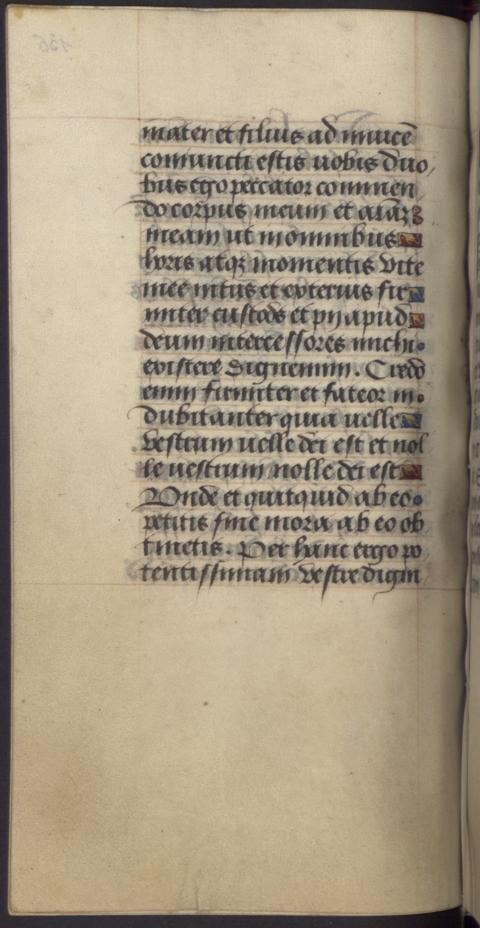 mater et filius ad inuicē
coniuncti estis uobis duo
bus ego peccator commen
do corpus meum et aīaʒ
meam ut in omnibus
horis atqʒ momentis vite
mee intus et exterius fir
miter custods et pij apud
deum intercessores michi
existere dignemini. Credo
enim firmiter et fateor in
dubitanter quia uelle
vestrum uelle dei est et nol
le uestrum nolle dei est
Vnde et quitquid ab eo
petitis sine mora ab eo ob
tinetis. Per hanc ergo po
tentissimam vestre digni